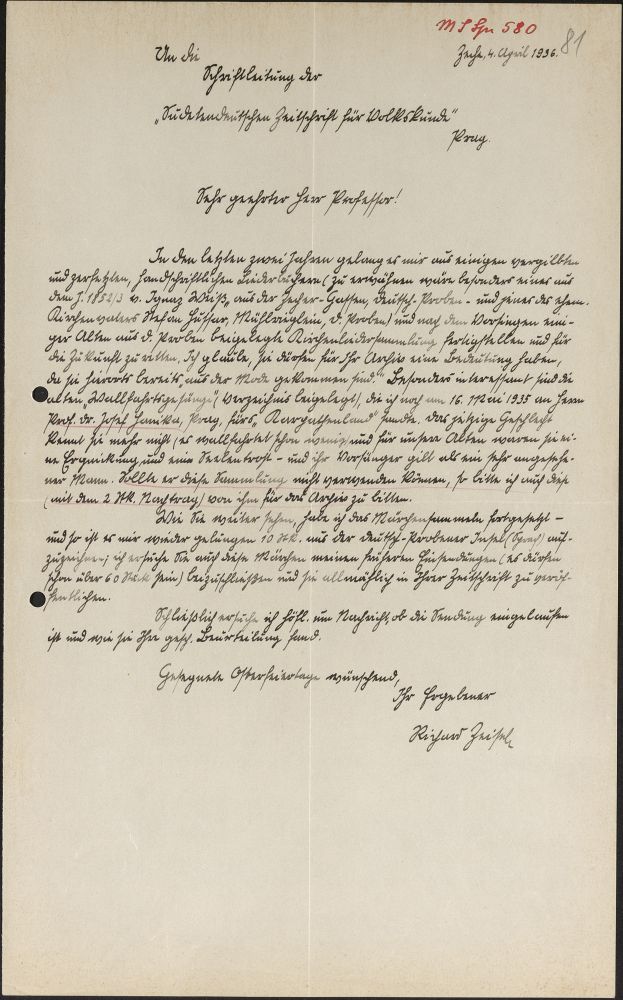 M S Spr 580
81
Zeche, 4. April 1936.
An die
Schriftleitung der
„Sudetendeutschen Zeitschrift für Volkskunde"
Prag.
Sehr geehrter Herr Professor!
In den letzten zwei Jahren gelang es mir aus einigen vergilbten
und zerfetzten, handschriftlichen Liederbüchern (zu erwähnen wäre besonders eines aus
dem J. 1852/3 v. Ignaz Weiß, aus der Zecher-Gassen, Deutsch-Proben - und jenes des ehem.
Kirchenvaters Stefan Hussar, D. Proben) und nach dem Vorsingen eini-
ger Alten aus D. Proben beigelegte Kirchenliedersammlung fertigstellen und für
die Zukunft zu retten. Ich glaube, sie dürften für Ihr Archiv eine Bedeutung haben,
da sie hierorts bereits „aus der Mode gekommen sind." Besonders interessant sind die
alten „Wallfahrtsgesänge" (Verzeichnis beigelegt), die ich noch am 16. Mai 1935 an Herrn
Prof. Dr. Josef Hanika, Prag, fürs „Karpathenland" sandte. Das jetzige Geschlecht
kennt sie mehr nicht (es wallfahrtet schon wenig) und für unsere Alten waren sie ei-
ne Erquickung und eine Seelentrost - und ihr Vorsänger gilt als ein sehr angesehe-
ner Mann. Sollte er diese Sammlung nicht verwenden können, so bitte ich auch diese
(mit dem 2 Stk. Nachtrag) von ihm für das Archiv zu bitten.
Wie Sie weiter sehen, habe ich das Märchensammeln fortgesetzt -
und so ist es mir wieder gelungen 10 Stk. aus der Deutsch-Probener Insel (Sprach) auf-
zuzeichnen; ich ersuche Sie auch diese Märchen meinen früheren Einsendungen (es dürften
schon über 60 Stück sein) beizuschließen und sie allmählich in Ihrer Zeitschrift zu veröf-
fentlichen.
Schließlich ersuche ich höfl. um Nachricht, ob die Sendung eingelaufen
ist und wie sie Ihre gesch. Beurteilung fand.
Gesegnete Osterfeiertage wünschend,
Ihr Ergebener
Richard Zeisel